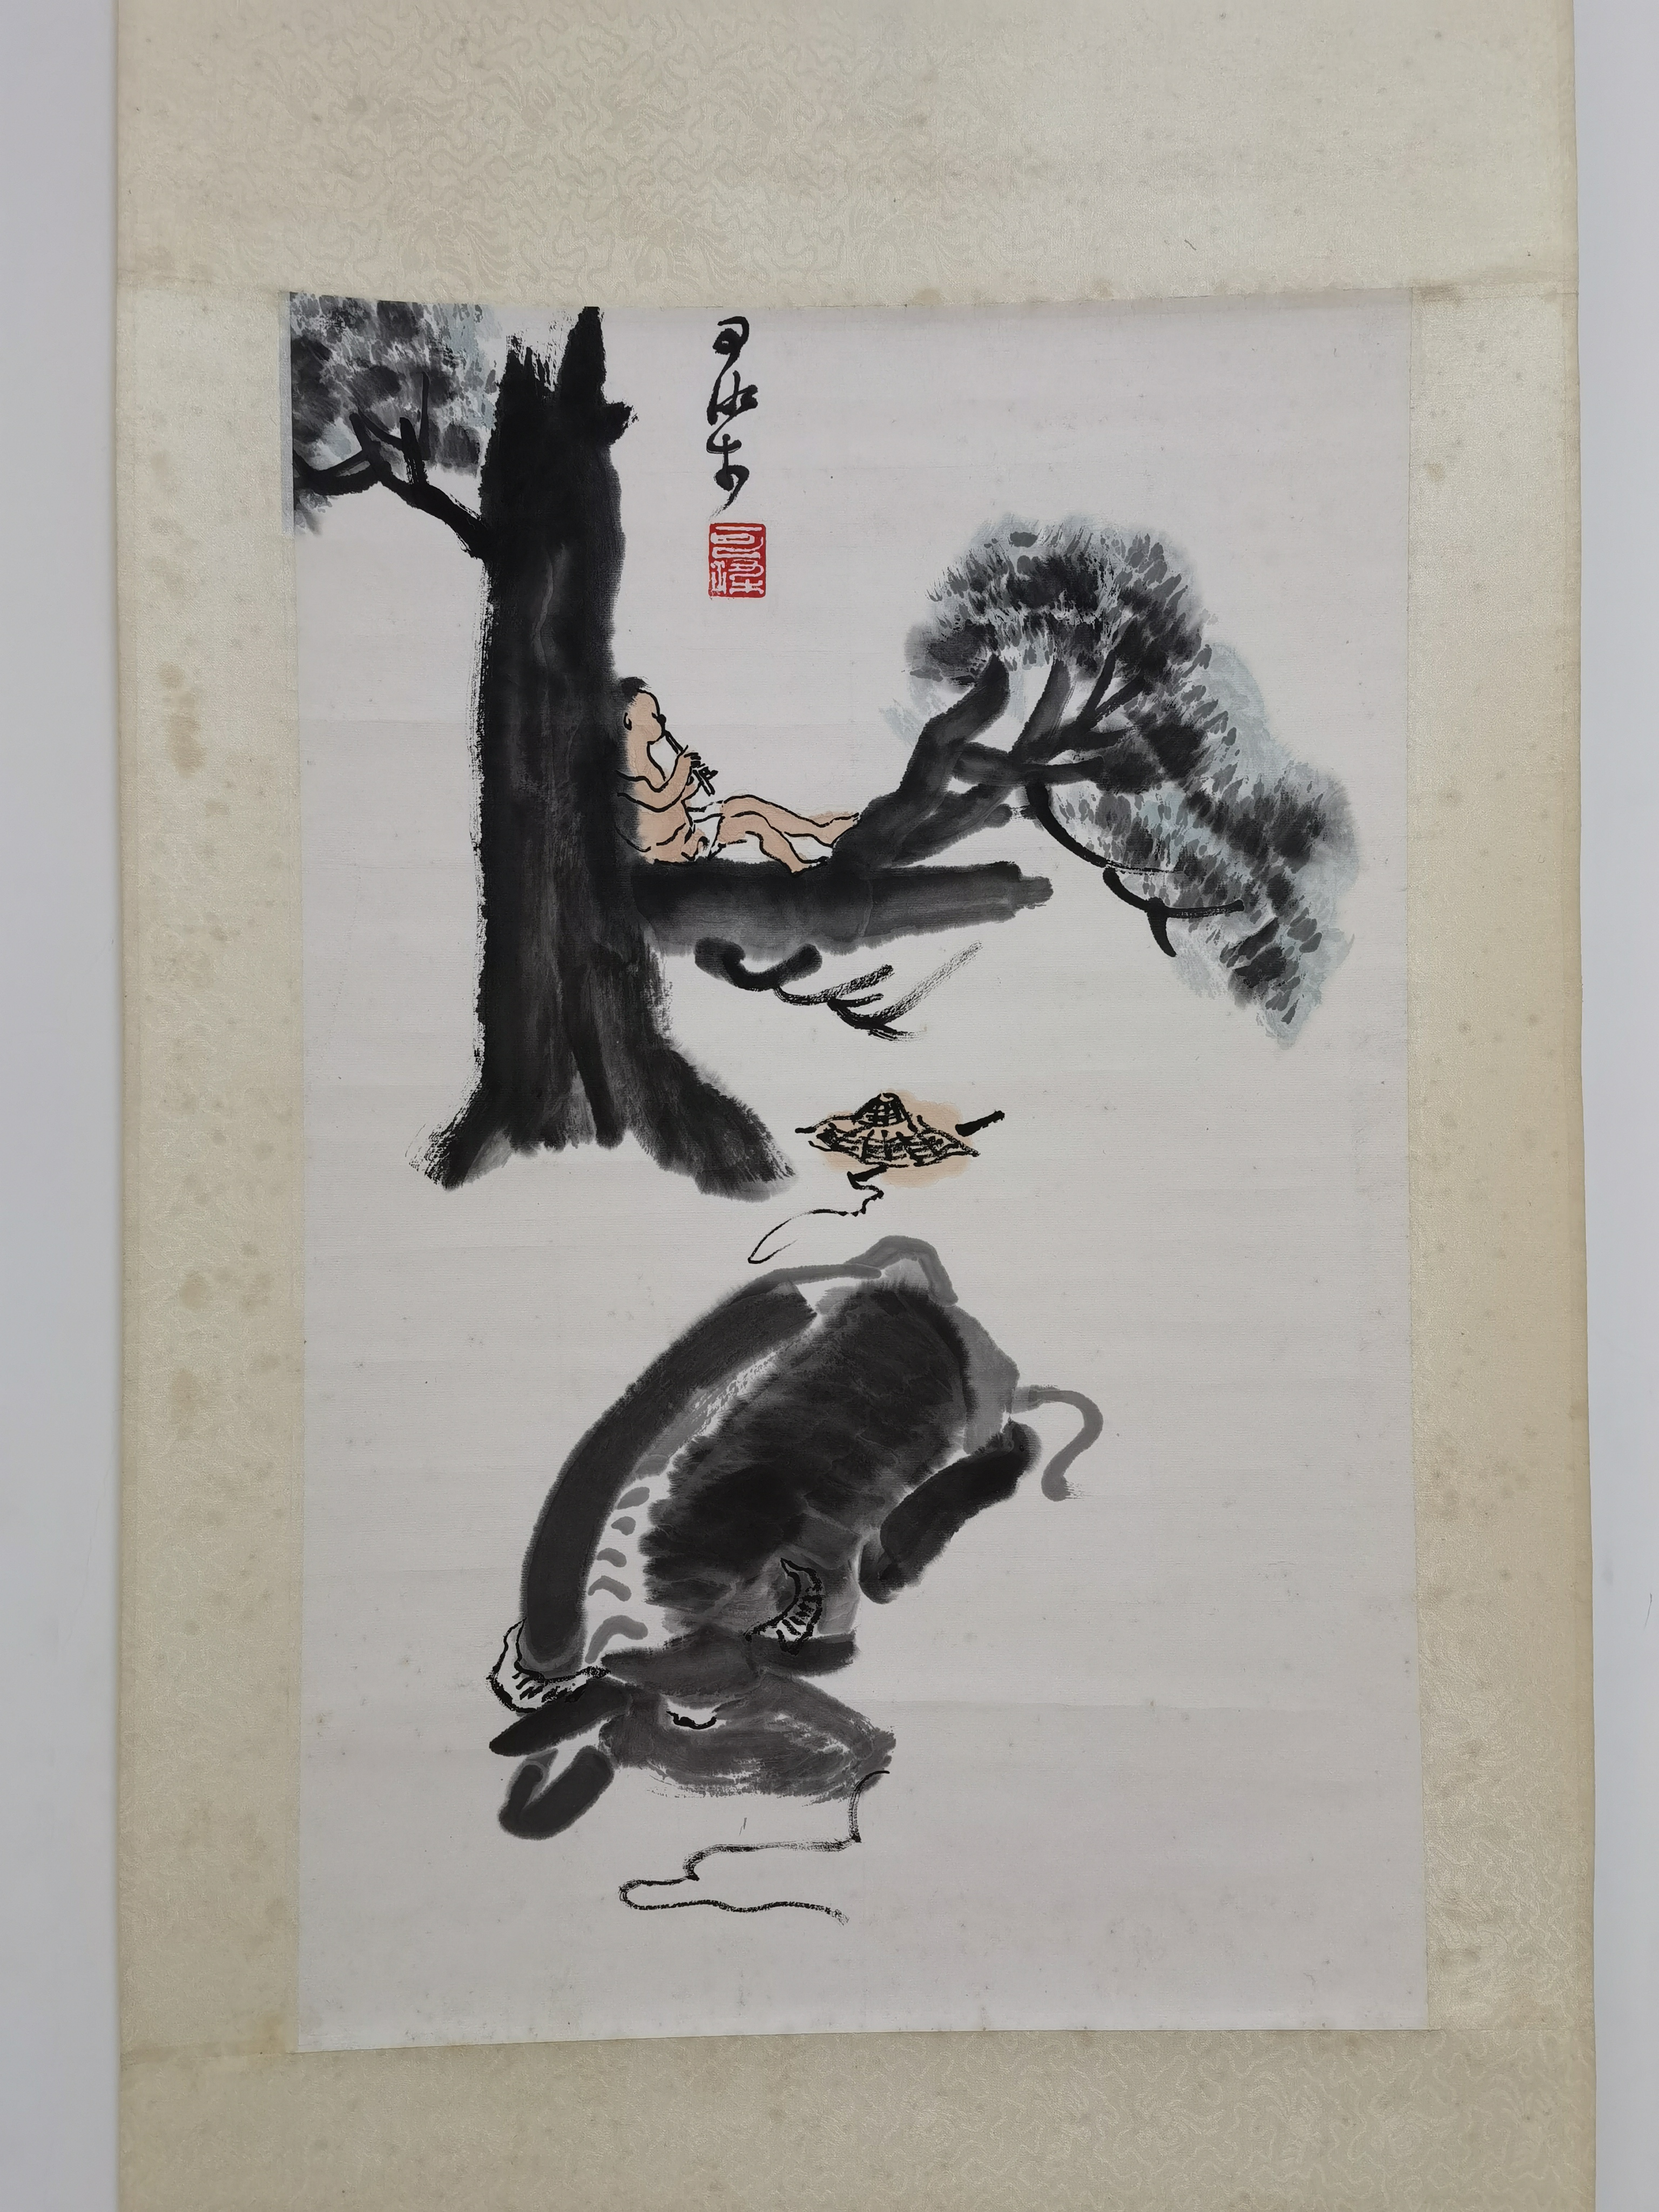 可染
可染